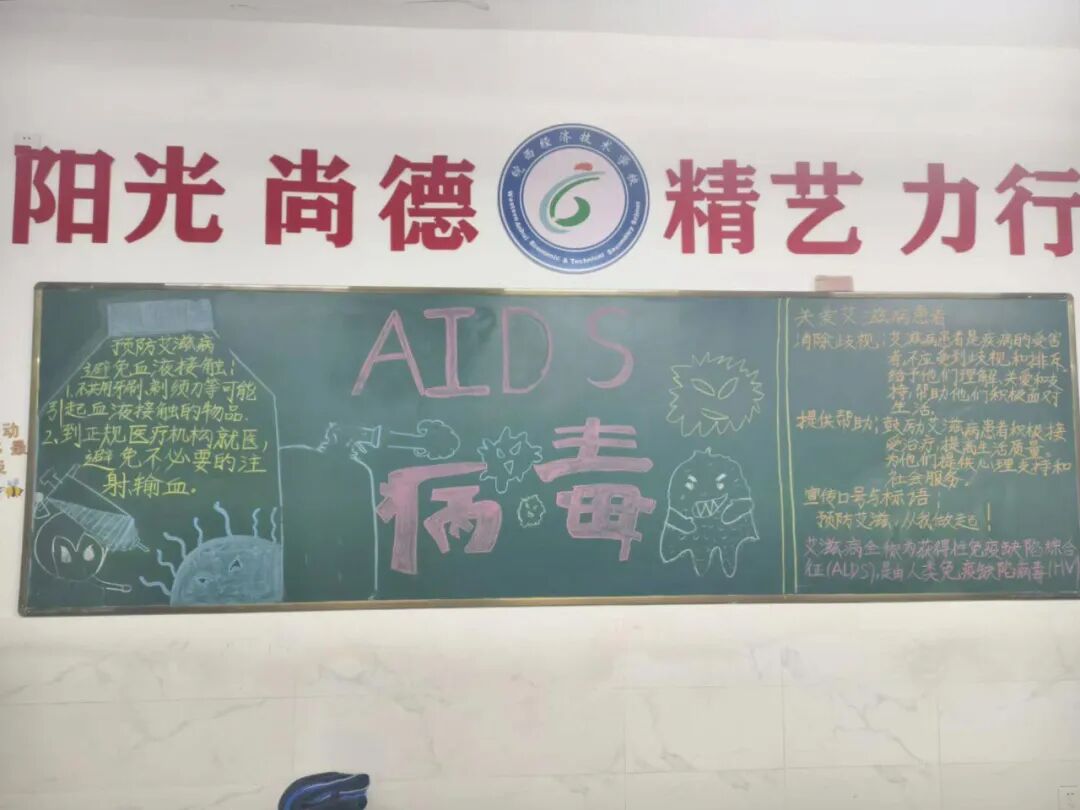 阳光 尚德 精艺 力行
皖西经济技术学校
Western Anhui Economic & Technical Secondary School
预防艾滋病
避免血液接触:
1.不共用牙刷、剃须刀等可能
引起血液接触的物品.
2.到正规医疗机构就医,
避免不必要的注
射输血。
AIDS
病毒
关爱艾滋病患者
消除歧视:艾滋病患者是疾病的受害
者,不应受到歧视和排斥
给予他们理解、关爱和支
持,帮助他们积极面对
生活。
提供帮助:鼓励艾滋病患者积极接
受治疗,提高生活质量。
为他们提供心理支持和
社会服务。
宣传口号与标语:
预防艾滋,从我做起!
艾滋病全称为获得性免疫缺陷综合
征(AIDS),是由人类免疫缺陷病毒(HIV)
动